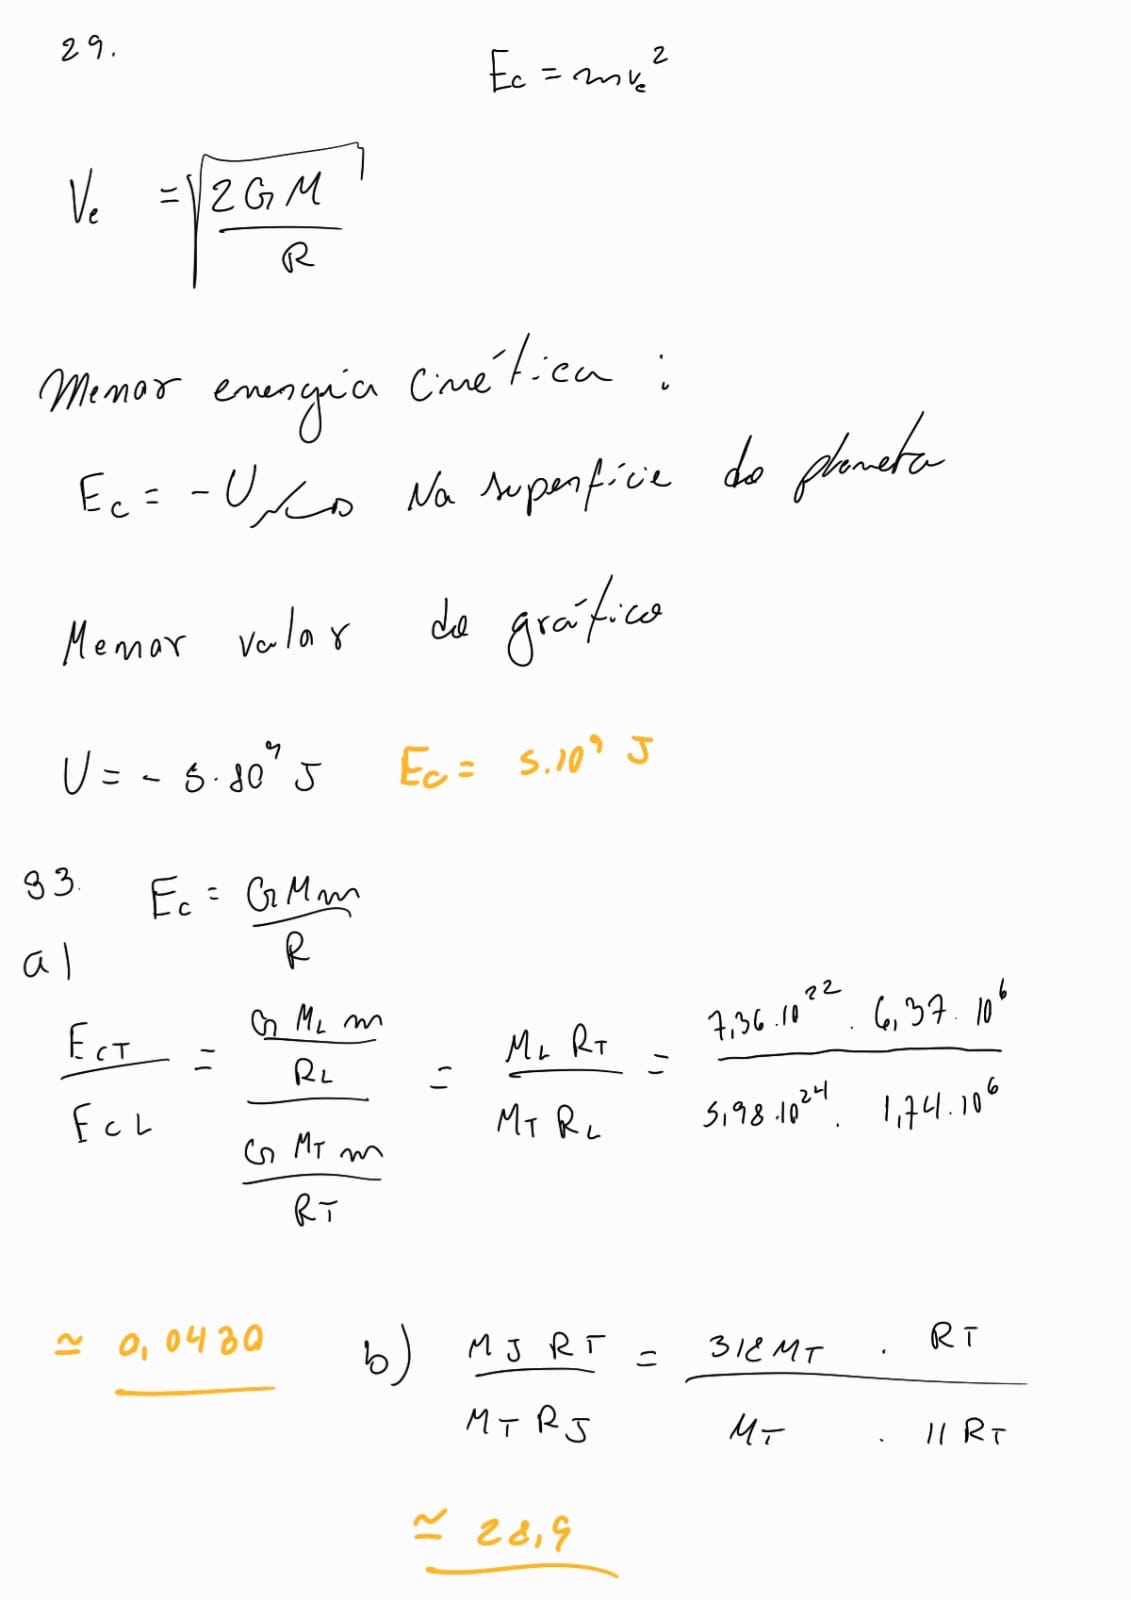 29.
Ec = mve²
Ve = √(2GM / R)
Menor energia cinética :
Ec = - U → Na superfície do planeta
Menor valor do gráfico
U = - 5.10⁹ J Ec = 5.10⁹ J
33. Ec = GMm / R
a)
EcT / EcL = (G ML m / RL) / (G MT m / RT) = ML RT / MT RL = 7,36.10²² . 6,37.10⁶ / 5,98.10²⁴ . 1,74.10⁶
≃ 0,0430 b) MJ RT / MT RJ = 318MT . RT / MT . 11 RT
≃ 28,9